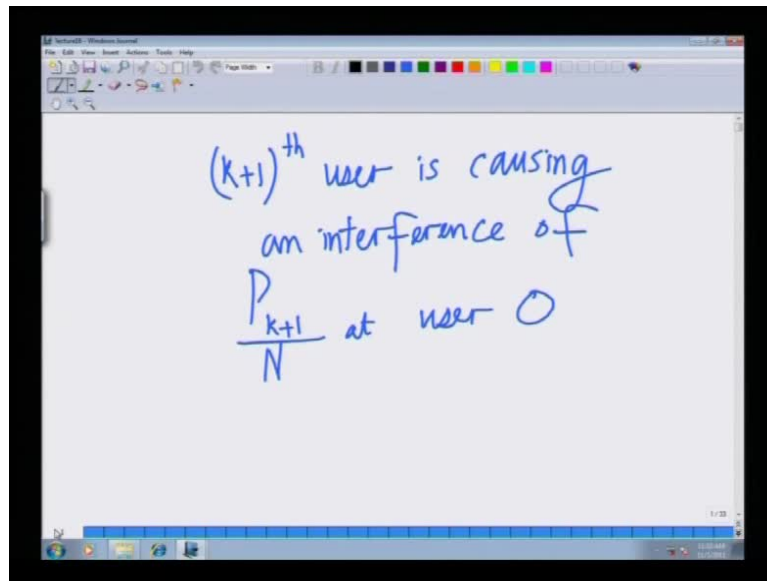 lecture18 - Windows Journal
File Edit View Insert Actions Tools Help
Page Width
B I
(k+1)^th user is causing
an interference of
P_{k+1}/N at user 0
1/33